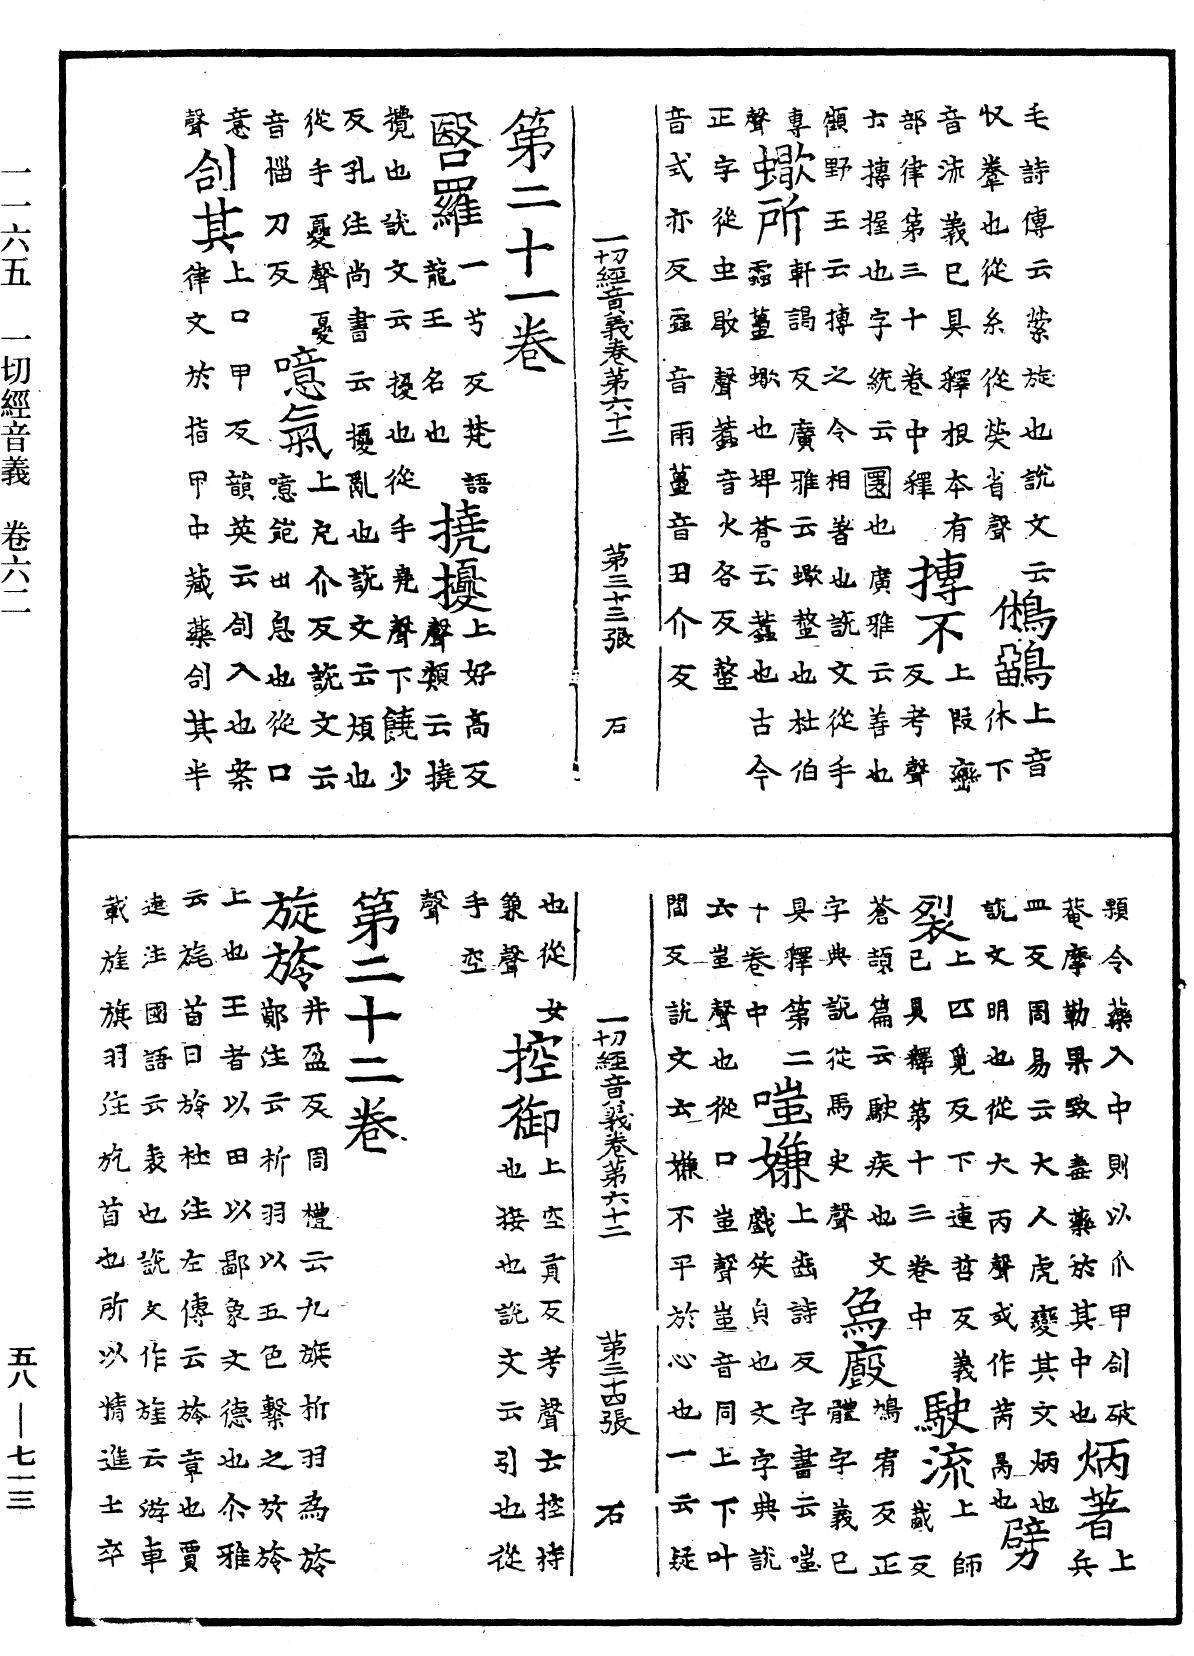 毛詩傳云縈旋也說文云
收韏也從糸從熒省聲
鵂鶹
上音休下
音流義已具釋根本有
部律第三十卷中釋
摶不
上段巒反考聲
云摶握也字統云團也廣雅云著也
顧野王云摶之令相著也說文從手
專聲
蠍所
軒謁反廣雅云蠍蠚也杜伯
聲蠆蠍也埤蒼云蠚也古今
正字從虫歇聲蠚音火各反螫
音式亦反音雨蠆音丑介反
一切經音義卷第六十二 第三十三張 石
第二十一卷
毉羅
一兮反梵語
龍王名也
撓擾
上好高反
聲類云撓
攪也說文云擾也從手堯聲下饒少
反孔注尚書云擾亂也說文云煩也
從手憂聲憂
音惱刀反
噫氣
上厄介反說文云
噫飽出息也從口
意聲
刣其
上口甲反韻英云刣入也案
律文於指甲中藏藥刣其半
顆令藥入中則以爪甲刣破
菴摩勒果致盡藥於其中也
炳著
上兵
皿反周易云大人虎變其文炳也
說文明也從火丙聲或作昺也
劈裂
上匹覓反下連哲反義
已具釋第十三卷中
駛流
上師厠反
蒼頡篇云駛疾也文
字典說從馬史聲
為廄
鳩宥反正
體字義已
具釋第二
十卷中
嗤嫌
上齒詩反字書云嗤
戲笑貞也文字典說
云蚩聲也從口蚩聲蚩音同上下叶
閻反說文云嫌不平於心也一云疑
一切經音義卷第六十二 第三十四張 石
也從女
兼聲
控御
上空貢反考聲云控持
也接也說文云引也從
手空
聲
第二十二卷
旋旍
井盈反周禮云九旗析羽為旍
鄭注云析羽以五色繫之於旍
上也王者以田以鄙象文德也尒雅
云旄首曰旍杜注左傳云旍章也賈
逵注國語云表也說文作旌云游車
載旌旗羽注旄首也所以精進士卒
一一六五 一切經音義 卷六二
五八—七一三